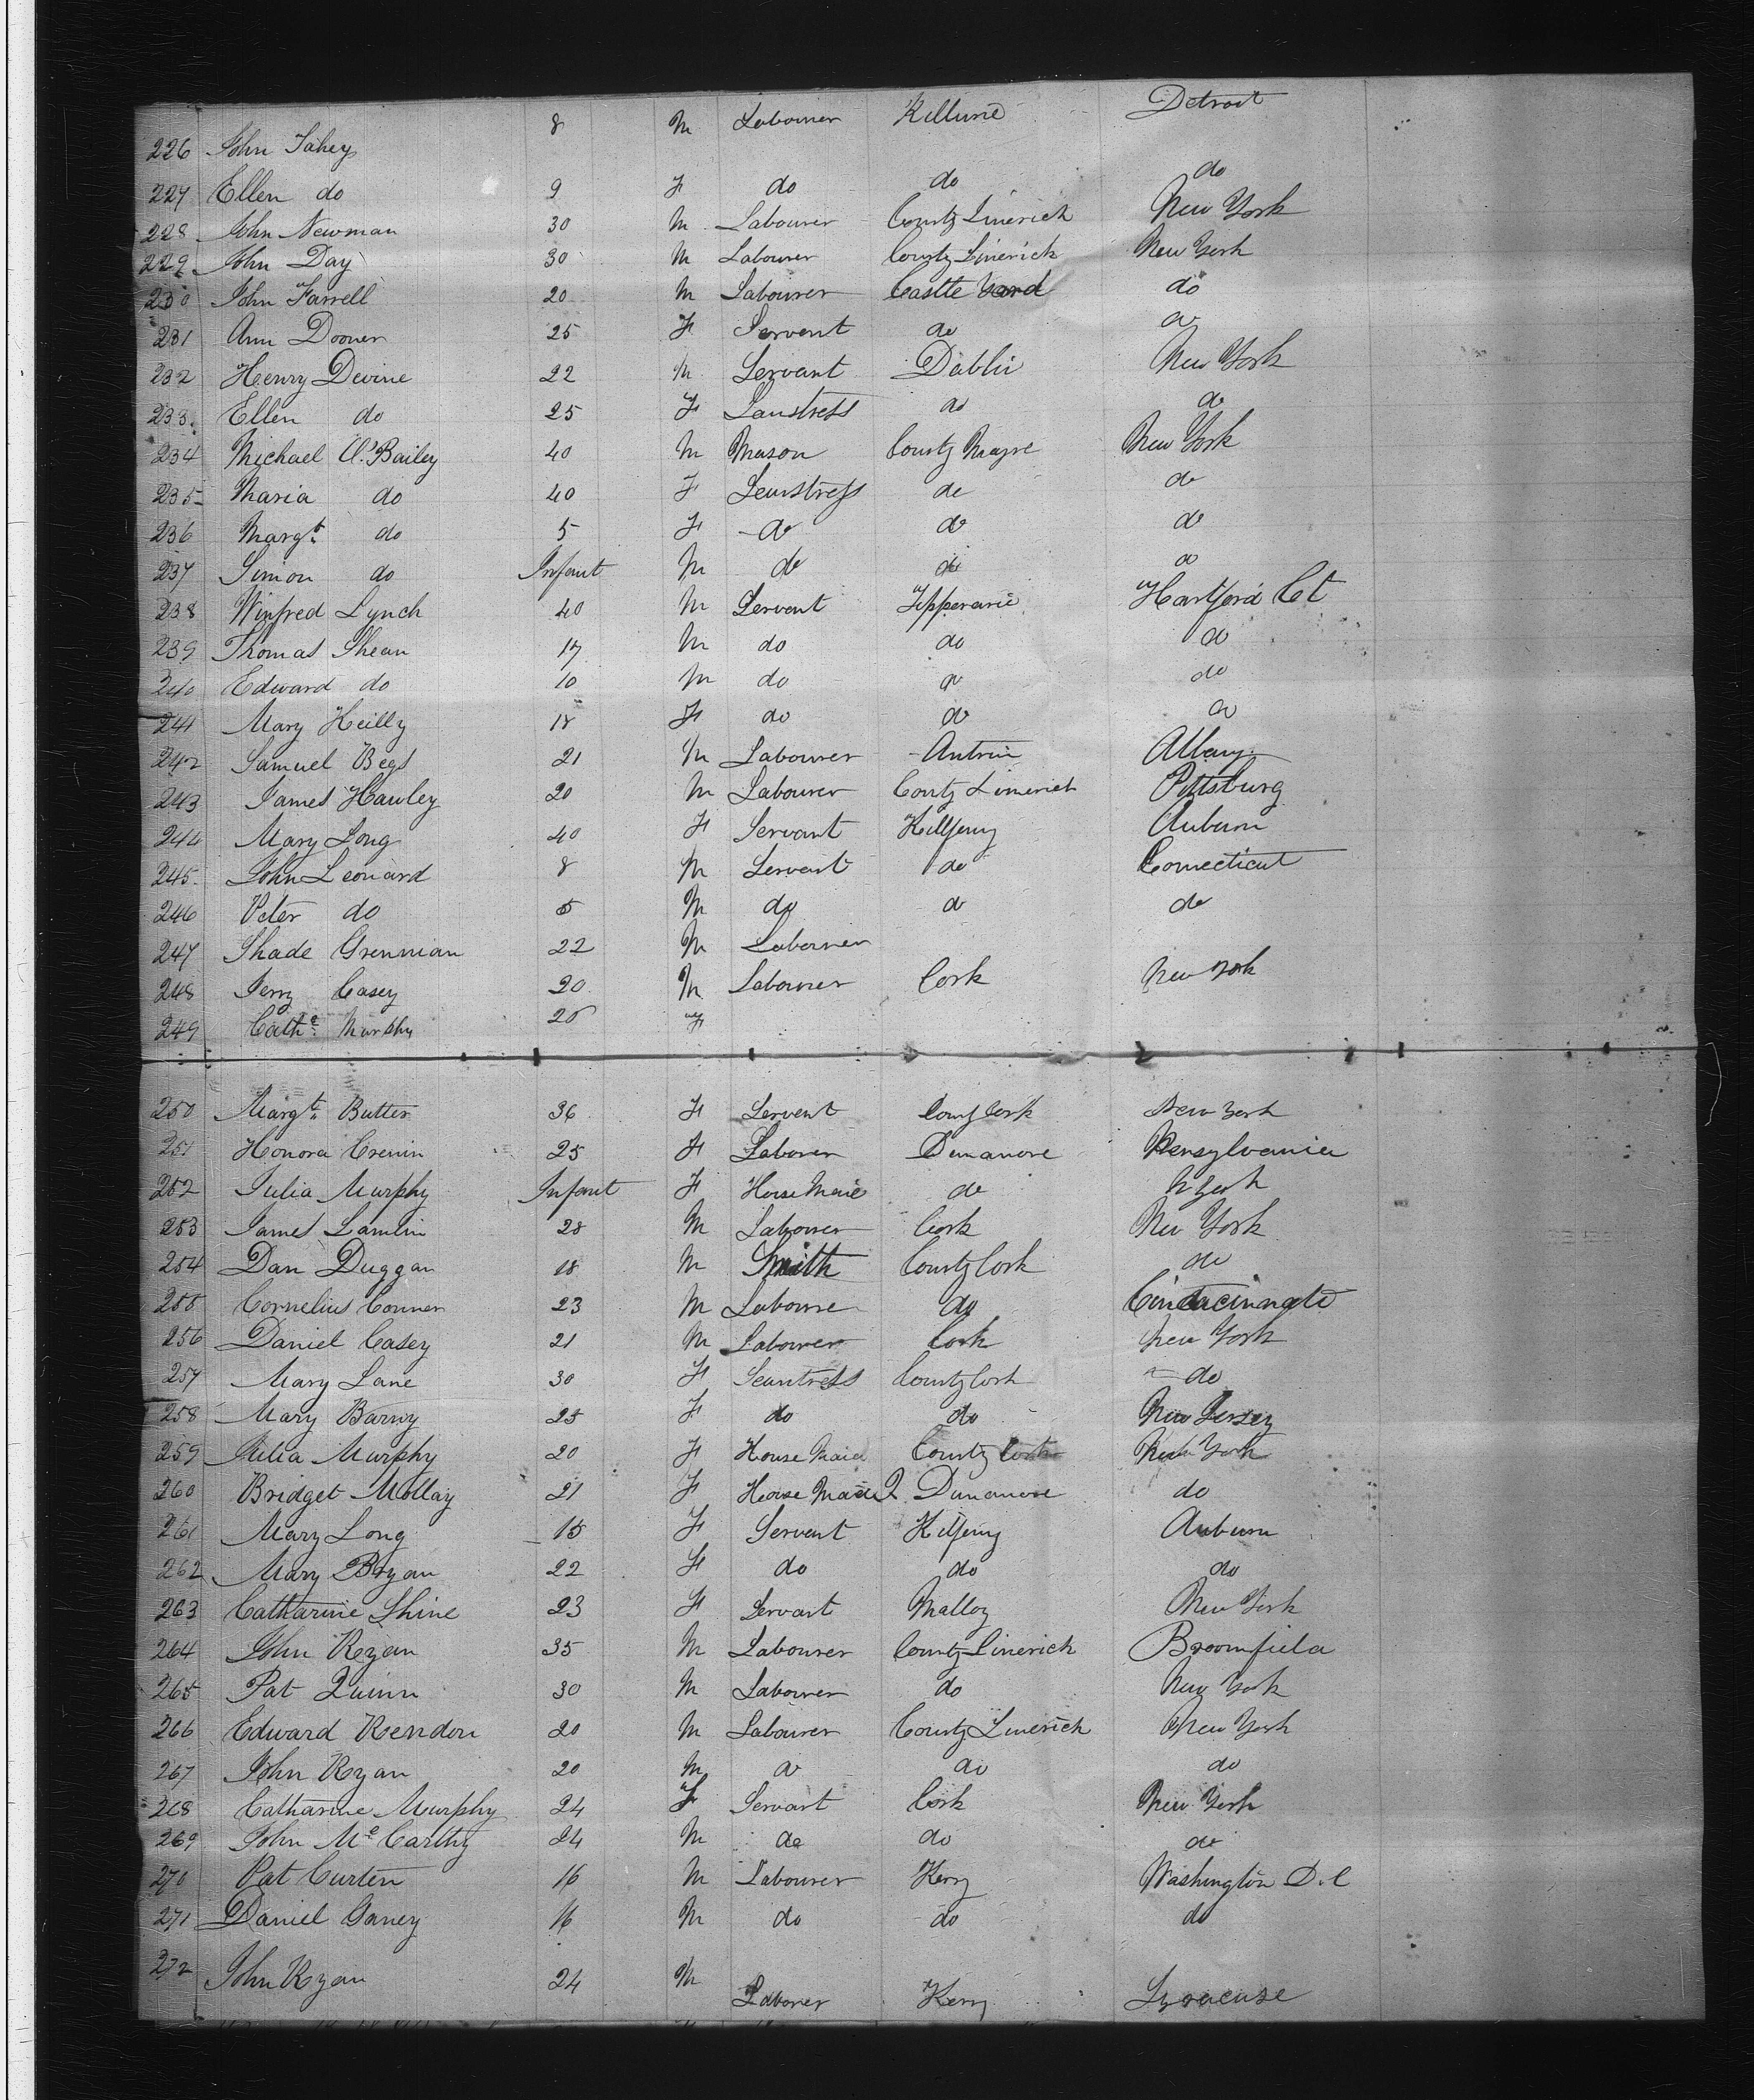 226 John Fahey 8 M Labourer Killurie Detroit
227 Ellen do 9 F do do do
228 John Newman 30 M Labourer County Limerick New York
229 John Day 30 M Labourer County Limerick New York
230 John Farrell 20 M Labourer Castle do
231 Ann Dooner 25 F Servent do do
232 Henry Devine 22 M Servant Dublin New York
233 Ellen do 25 F do do
234 Michael O'Bailey 40 M Mason County Mayre New York
235 Maria do 40 F Semstress do do
236 Margt. do 5 F do do do
237 Simon do Infant M do do do
238 Winfred Lynch 40 M Servent Tipperarie Hartford Ct
239 Thomas Shean 17 M do do do
240 Edward do 10 M do do do
241 Mary Keilly 18 F do do do
242 Samuel Begs 21 M Labourer Antrim Albany
243 James Hawley 20 M Labourer County Limerick Pittsburg
244 Mary Long 40 F Servant Auburn
245 John Leonard 8 M Servant do Connecticut
246 Peter do M do do do
247 Shade Grenman 22 M Labourer
248 Jerry Casey 20 M Labourer Cork New York
249 Cathe. Murphy 20 F
250 Margt. Butter 36 F Servent County Cork New York
251 Honora Crenin 25 F Laborer Dunanore Pensylvania
252 Julia Murphy Infant F House Maid do N York
253 James Lamlin 28 M Labourer Cork New York
254 Dan Duggan 18 M Smith County Cork do
255 Cornelius Conner 23 M Laboure do
256 Daniel Casey 21 M Labourer Cork New York
257 Mary Lane 30 F Seamtress County Cork do
258 Mary Barry 25 F do do New Jersey
259 Julia Murphy 20 F House Maid County Cork New York
260 Bridget Mollay 21 F House Maid Dunanore do
261 Mary Long 15 F Servent Auburn
262 Mary Bryan 22 F do do do
263 Catharine Shine 23 F Servant Malloy New York
264 John Ryan 35 M Labourer County Limerick Broomfield
265 Pat Quinn 30 M Labourer do New York
266 Edward Rendon 20 M Labourer County Limerick New York
267 John Ryan 20 M do do do
268 Catharine Murphy 24 F Servant Cork New York
269 John Mc Carthy 24 M do do do
270 Pat Curten 16 M Labourer Kerry Washington D.C
271 Daniel Ganey 16 M do do do
272 John Ryan 24 M Laborer Kerry Syracuse